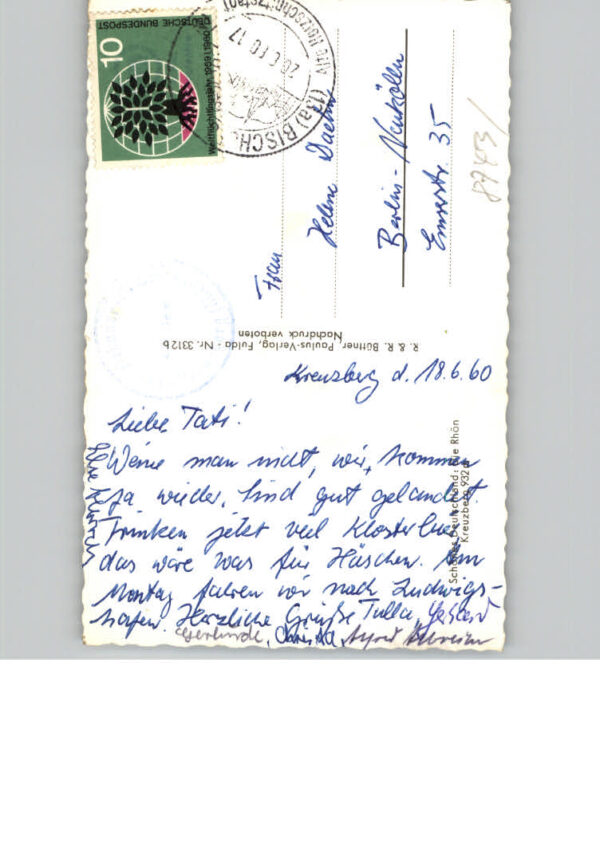 DEUTSCHE BUNDESPOST
10
Weltflüchtlingsjahr 1959/1960
20.6.60.17
(13a) BISCH
Frau
Helene
Berlin-Neukölln
Emserstr. 35
8743/
R. & R. Büttner, Paulus-Verlag, Fulda - Nr. 3312 b
Nachdruck verboten
Kreuzberg d. 18.6.60
Liebe Tati!
Weine man nicht, wir kommen
ja wieder. Sind gut gelandet.
Trinken jetzt viel Klosterbier
das wäre was für Häschen. Am
Montag fahren wir nach Ludwigs-
hafen. Herzliche Grüße Tulla, Gerhard
Gerlinde, Christa,
Schönes Deutschland: Die Rhön
Kreuzberg 932 m